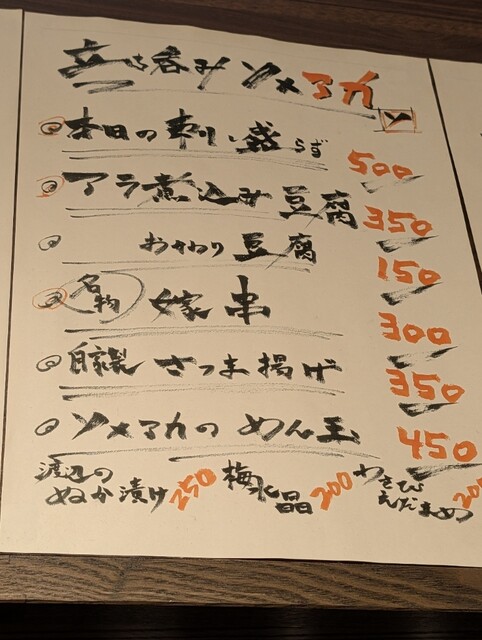 立ち呑みソメアカ
ソ
本日の刺し盛 らず 500
アラ煮込み豆腐 350
おかわり豆腐 150
名物 嫁串 300
自家製 さつま揚げ 350
ソメアカの めん玉 450
渡辺の ぬか漬け 250 梅水晶 200 わさび えだまめ 200